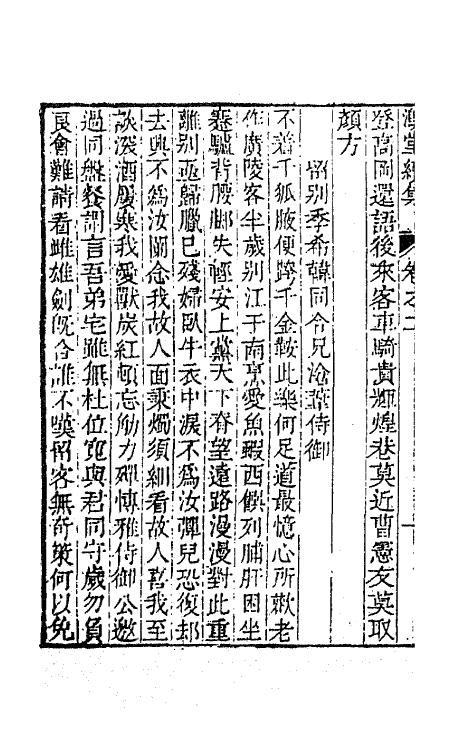 漁堂續集 卷之二
登高岡還語後來客車騎貴輝煌巷莫近曹憲友莫取
顏方
留別季希韓同令兄滄葦侍御
不著千狐腋便跨千金鞍此樂何足道最憶心所歡老
作廣陵客半歲別江干南烹愛魚蝦西饌列脯肝困坐
蹇驢背腰脚失輕安上黨天下脊望遠路漫漫對此重
離別亟歸臘已殘婦臥牛衣中淚不為汝彈兒恐復却
去與不為汝闌念我故人面秉燭須細看故人喜我至
談深酒屢乘我愛獸炭紅頓忘觔力殫博雅侍御公邀
過同盤餐謂言吾弟宅雖無杜位寬與君同守歲勿負
良會難請看雌雄劍旣合誰不嘆留客無奇策何以免